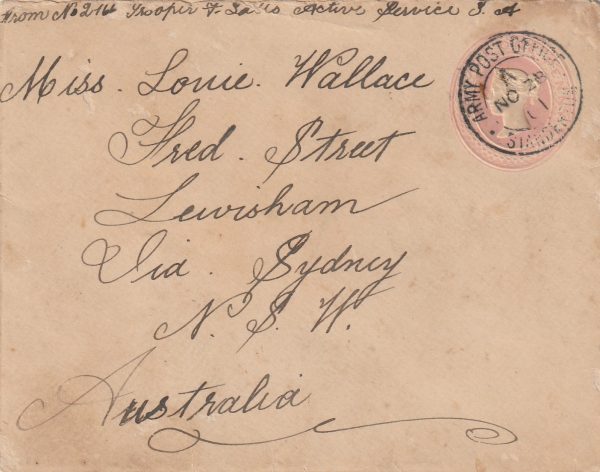 From No 214 Trooper F. Active Service S. A
Miss. Louie. Wallace
Fred. Street
Lewisham
Via. Sydney
N. S. W.
Australia
ARMY POST OFFICE
STANDER
A
NO 28
01